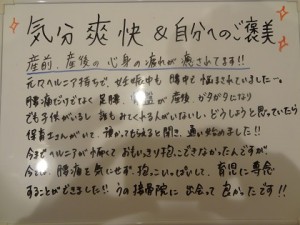 気分爽快 & 自分へのご褒美
産前、産後の心身の疲れが癒されてます!!
元々ヘルニア持ちで、妊娠中も腰中も悩まされていましたー。
腰痛だけでなく足腰、骨盤が産後、ガタガタになり
でも子供がいるし誰もみてくれる人がいないし、どうしようと思っていたら
保育士さんがいて、預かってもらえると聞き、通い始めました!!
今までヘルニアが怖くておもいっきり抱っこできなかったんですが
今では、腰痛を気にせず、抱っこいっぱいして、育児に専念
することができました!! うの接骨院に出会って良かったです!!